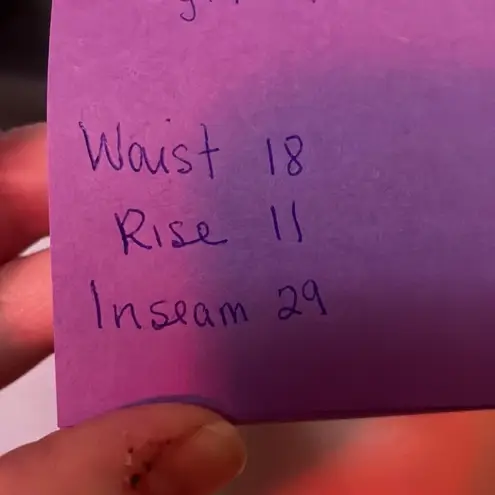 Waist 18
Rise 11
Inseam 29